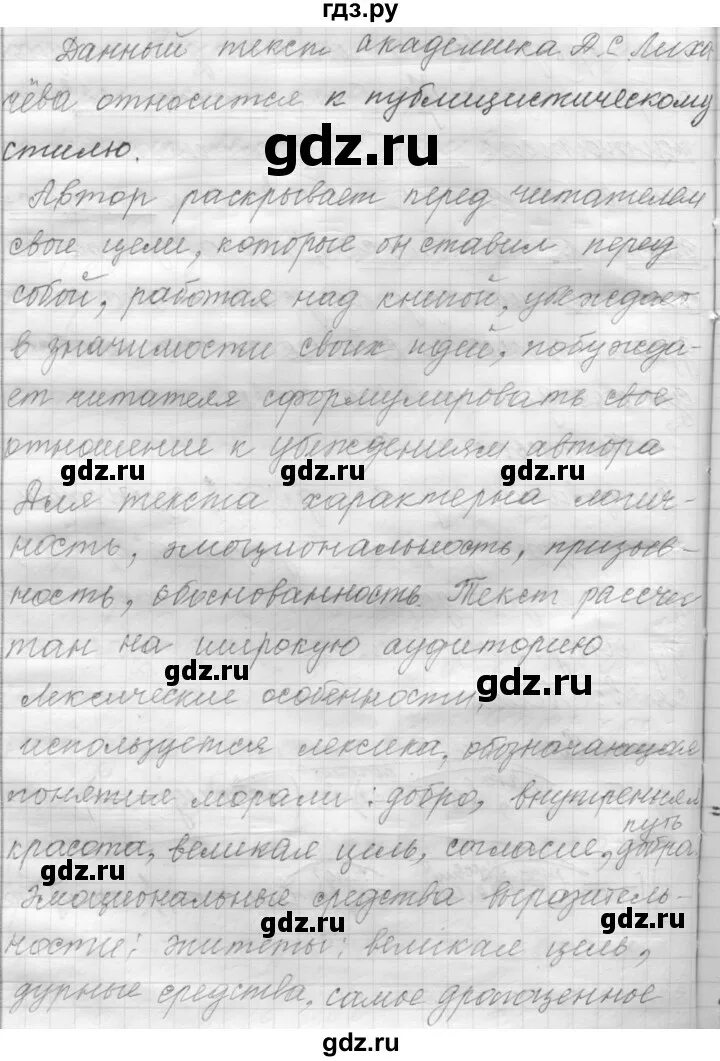 гдз.ру
Данный текст академика Д.С. Лиха
чёва относится к публицистическому
gdz.ru
стилю.
Автор раскрывает перед читателем
свои цели, которые он ставил перед
собой, работая над книгой, убеждает
в значимости своих идей, побужда-
ет читателя сформулировать свое
отношение к убеждениям автора
gdz.ru gdz.ru gdz.ru
Для текста характерна логич-
ность, эмоциональность, призыв-
ность, обоснованность. Текст рассчи
тан на широкую аудиторию
gdz.ru gdz.ru
Лексические особенности,
используется лексика, обозначающая
понятия морали: добро, внутренняя
путь
красота, великая цель, согласие, добра
gdz.ru
Эмоциональные средства выразитель-
gdz.ru
ности: эпитеты: великая цель,
дурные средства, самое драгоценное
gdz.ru